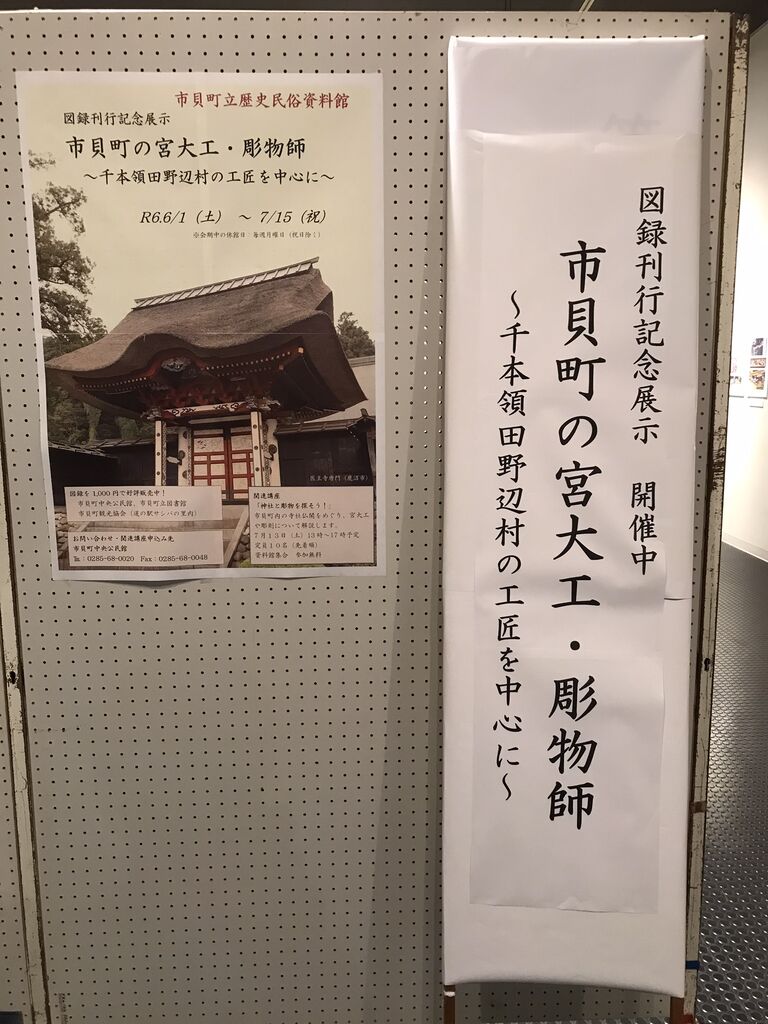 市貝町立歴史民俗資料館
図録刊行記念展示
市貝町の宮大工・彫物師
～千本領田野辺村の工匠を中心に～
R6.6/1（土）～7/15（祝）
※会期中の休館日：毎週月曜日（祝日除く）
医王寺唐門（鹿沼市）
図録を1,000円で好評販売中！
市貝町中央公民館、市貝町立図書館
市貝町観光協会（道の駅サシバの里内）
お問い合わせ・関連講座申込み先
市貝町中央公民館
℡：0285-68-0020 Fax：0285-68-0048
関連講座
「神社と彫物を探そう！」
市貝町内の寺社仏閣をめぐり、宮大工
や彫刻について解説します。
7月13日（土）13時～17時予定
定員10名（先着順）
資料館集合 参加無料
図録刊行記念展示 開催中
市貝町の宮大工・彫物師
～千本領田野辺村の工匠を中心に～